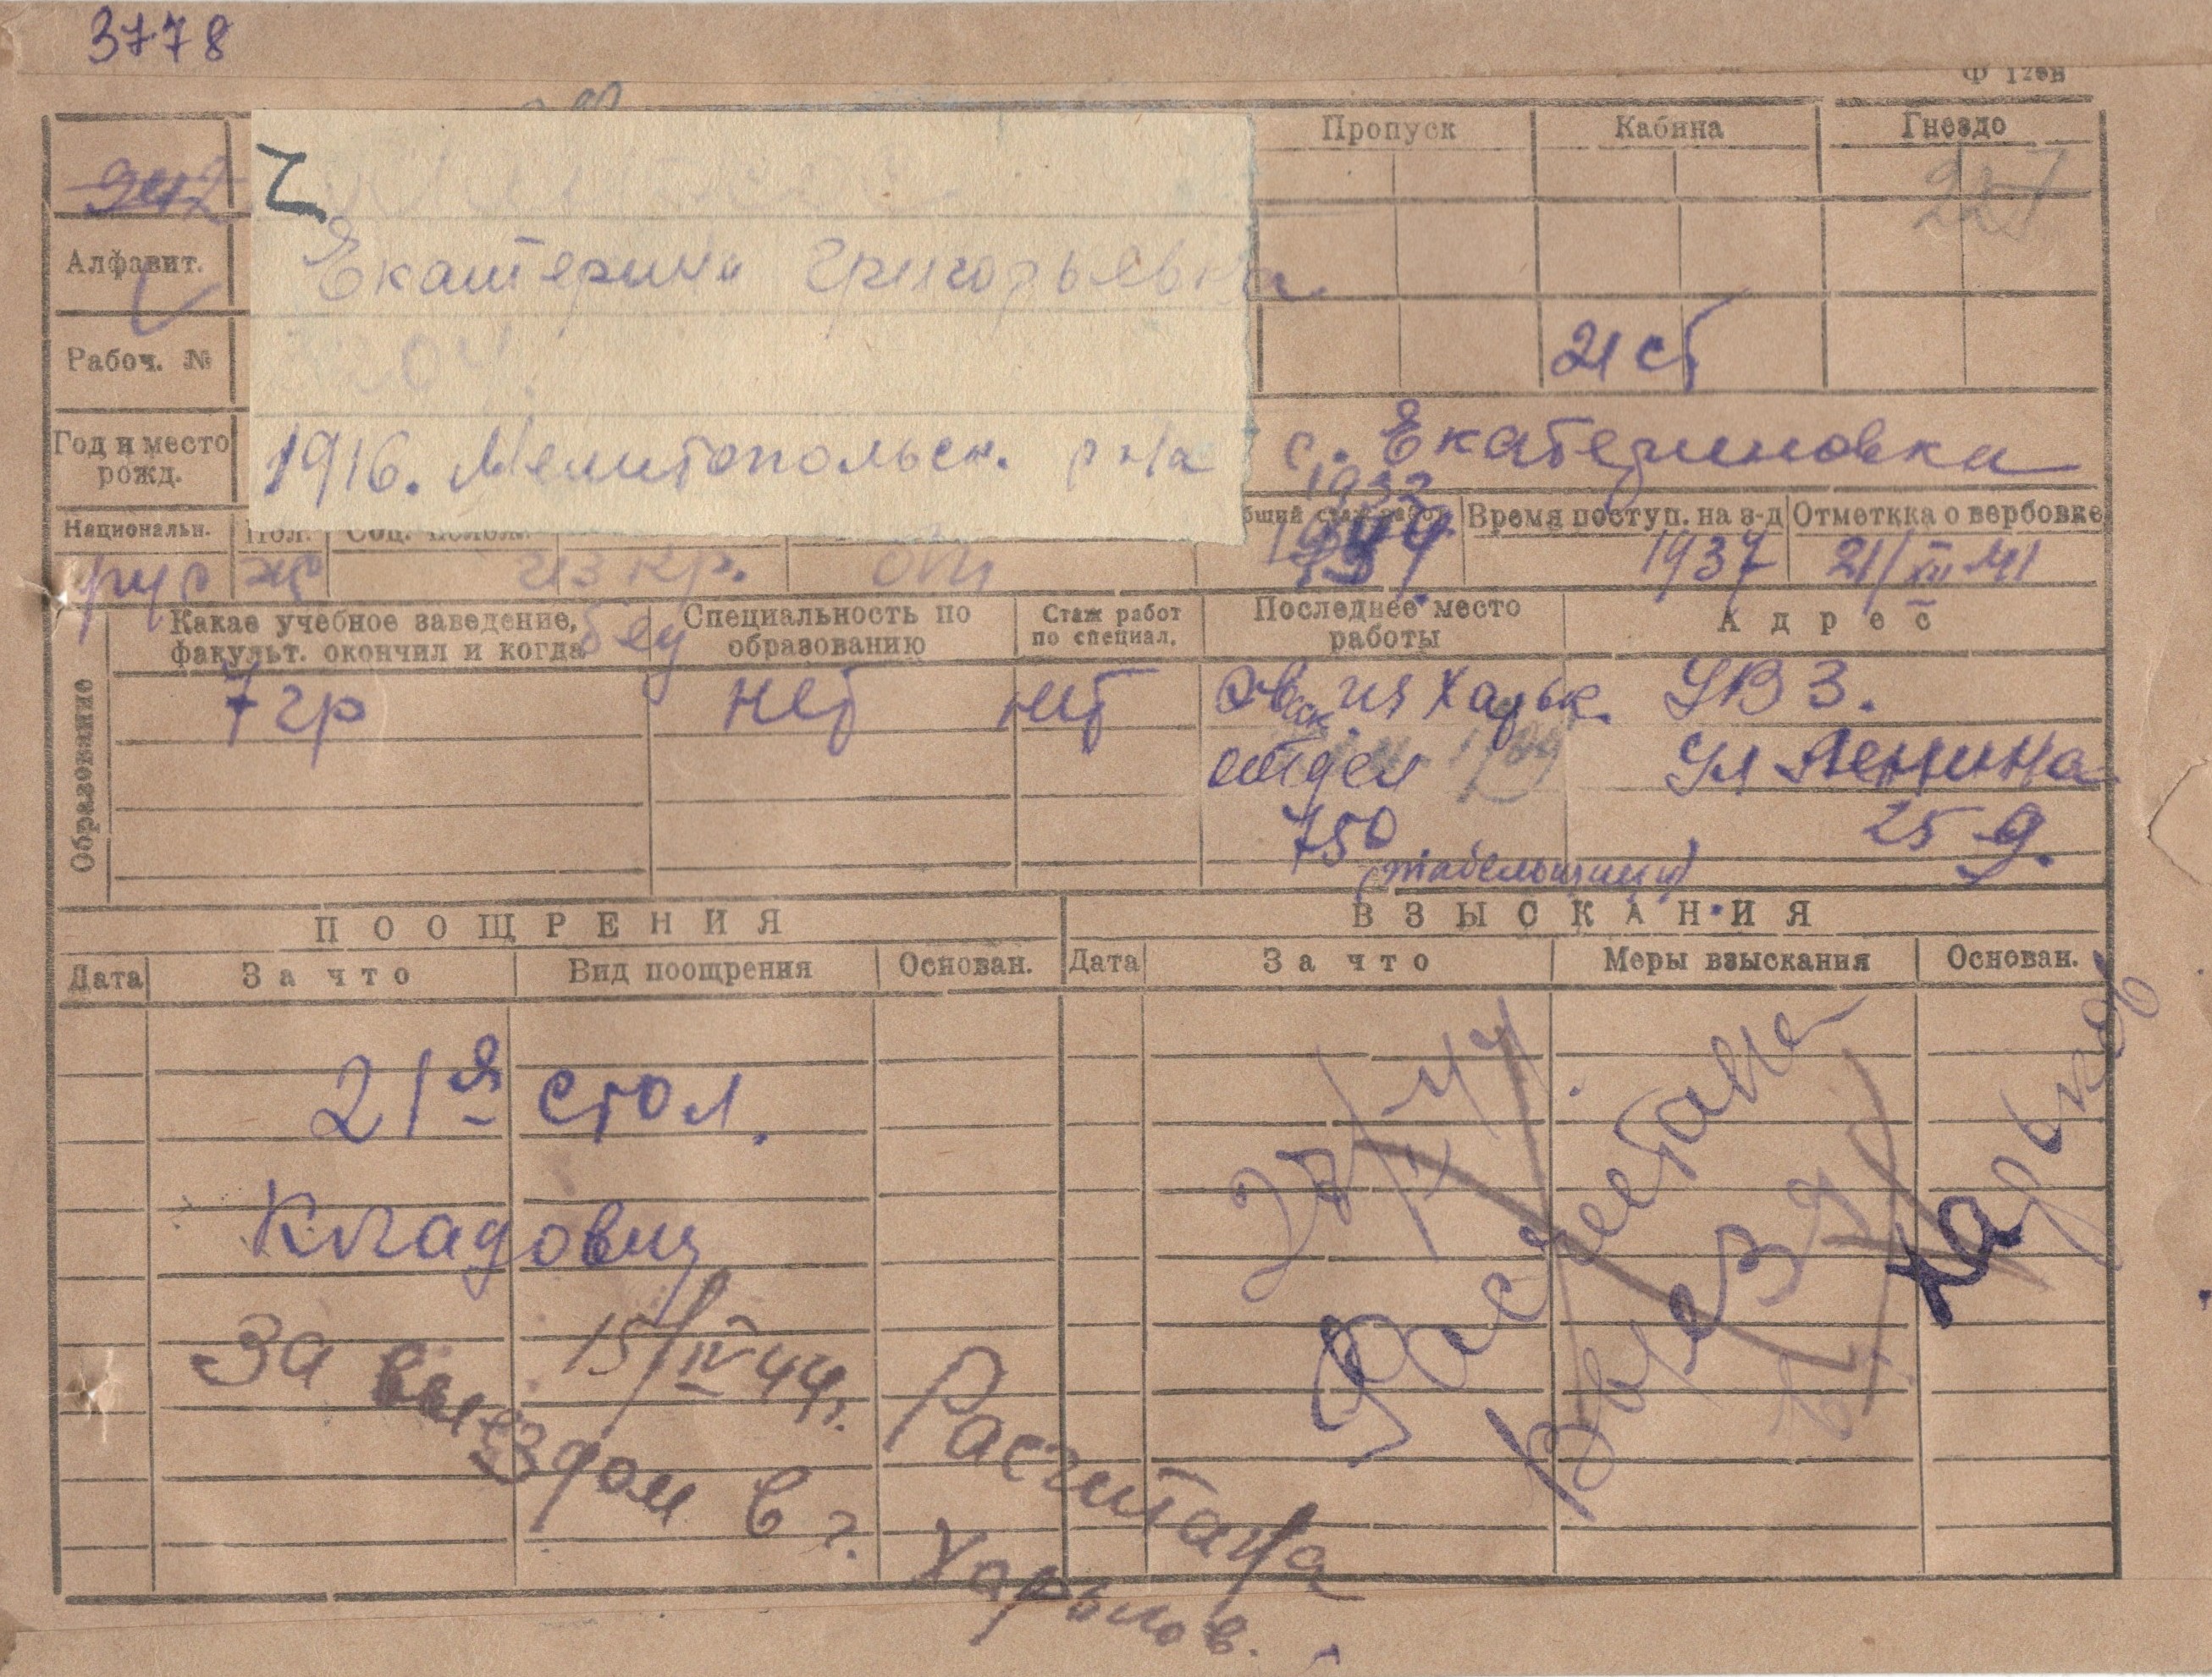 3778
Пропуск Кабина Гнездо
942
227
Алфавит.
Екатерина Григорьевна
Рабоч. №
3204.
21 ст
Год и место рожд.
1916. Мелитопольск. р-на с. Екатериновка
Национальн. Пол. Соц. полож.
1932
Время поступ. на з-д Отметкка о вербовке
рус ж из кр. бед
1937 21/XII 41
Образование
Какае учебное заведение, факульт. окончил и когда
Специальность по образованию
Стаж работ по специал.
Последнее место работы
Адрес
7 гр нет нет
Эвак из Харьк. УВЗ.
отдел ул Ленина
750 25 д.
(табельщица)
ПООЩРЕНИЯ ВЗЫСКАНИЯ
Дата За что Вид поощрения Основан. Дата За что Меры взыскания Основан.
21я стол.
Кладовщ
15/IV 44г. Расчитана
За выездом в г. Харьков.
Харьков